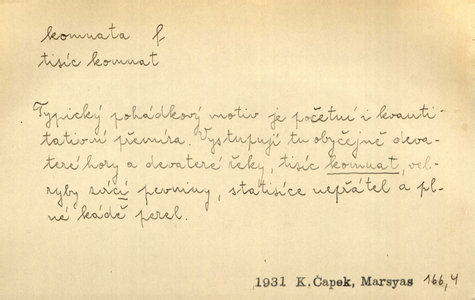 komnata f
tisíc komnat
Typický pohádkový motiv je početní i kvanti-
tativní přemíra. Vystupují tu obyčejně deva-
teré hory a devateré řeky, tisíc komnat, vel-
ryby zvíci pevniny, statisíce nepřátel a pl-
né kádě perel.
1931 K. Čapek, Marsyas 166,4